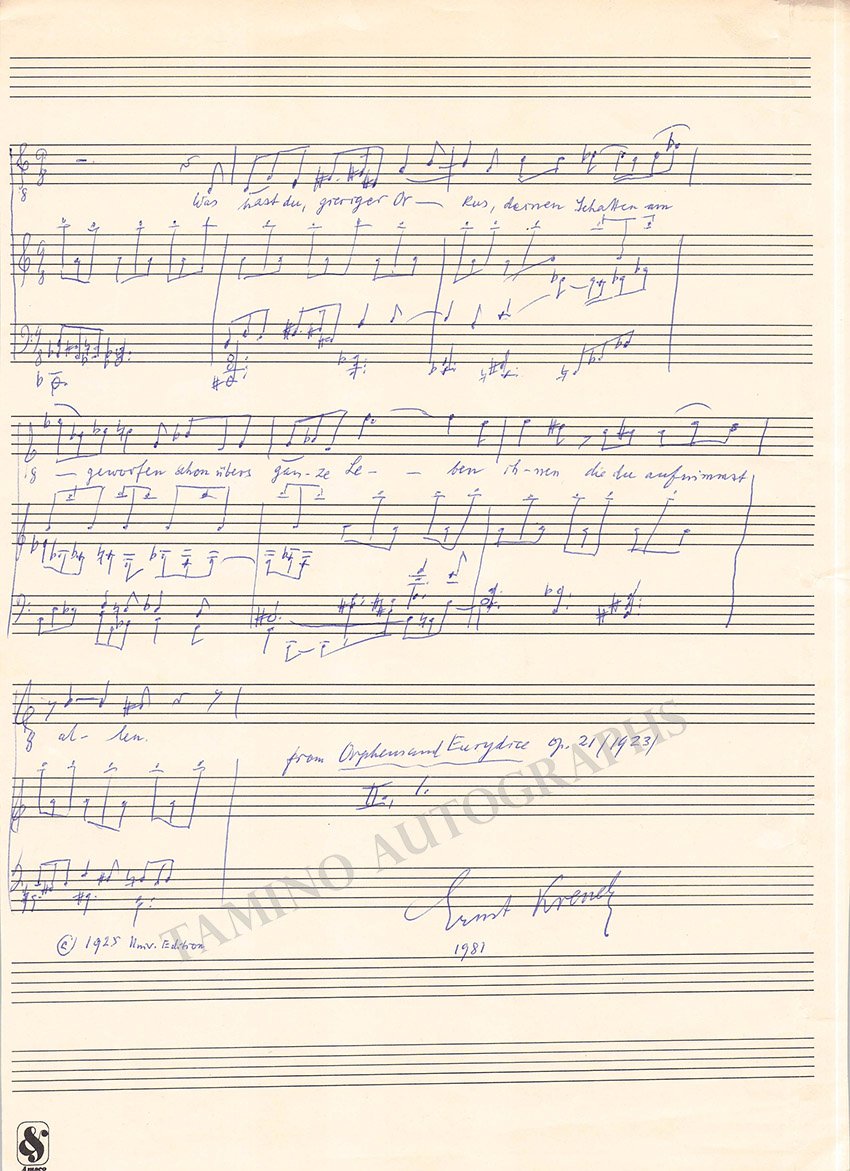 Was hast du, gieriger Or — kus, deinen Schatten am
ig — geworfen schon übers gan-ze Le- — ben ih-nen die du aufnimmst
al-len.
from Orpheus and Eurydice op. 21 /1923/
II, 1.
TAMINO AUTOGRAPHS
Ernst Krenek
© 1925 Univ. Edition
1981